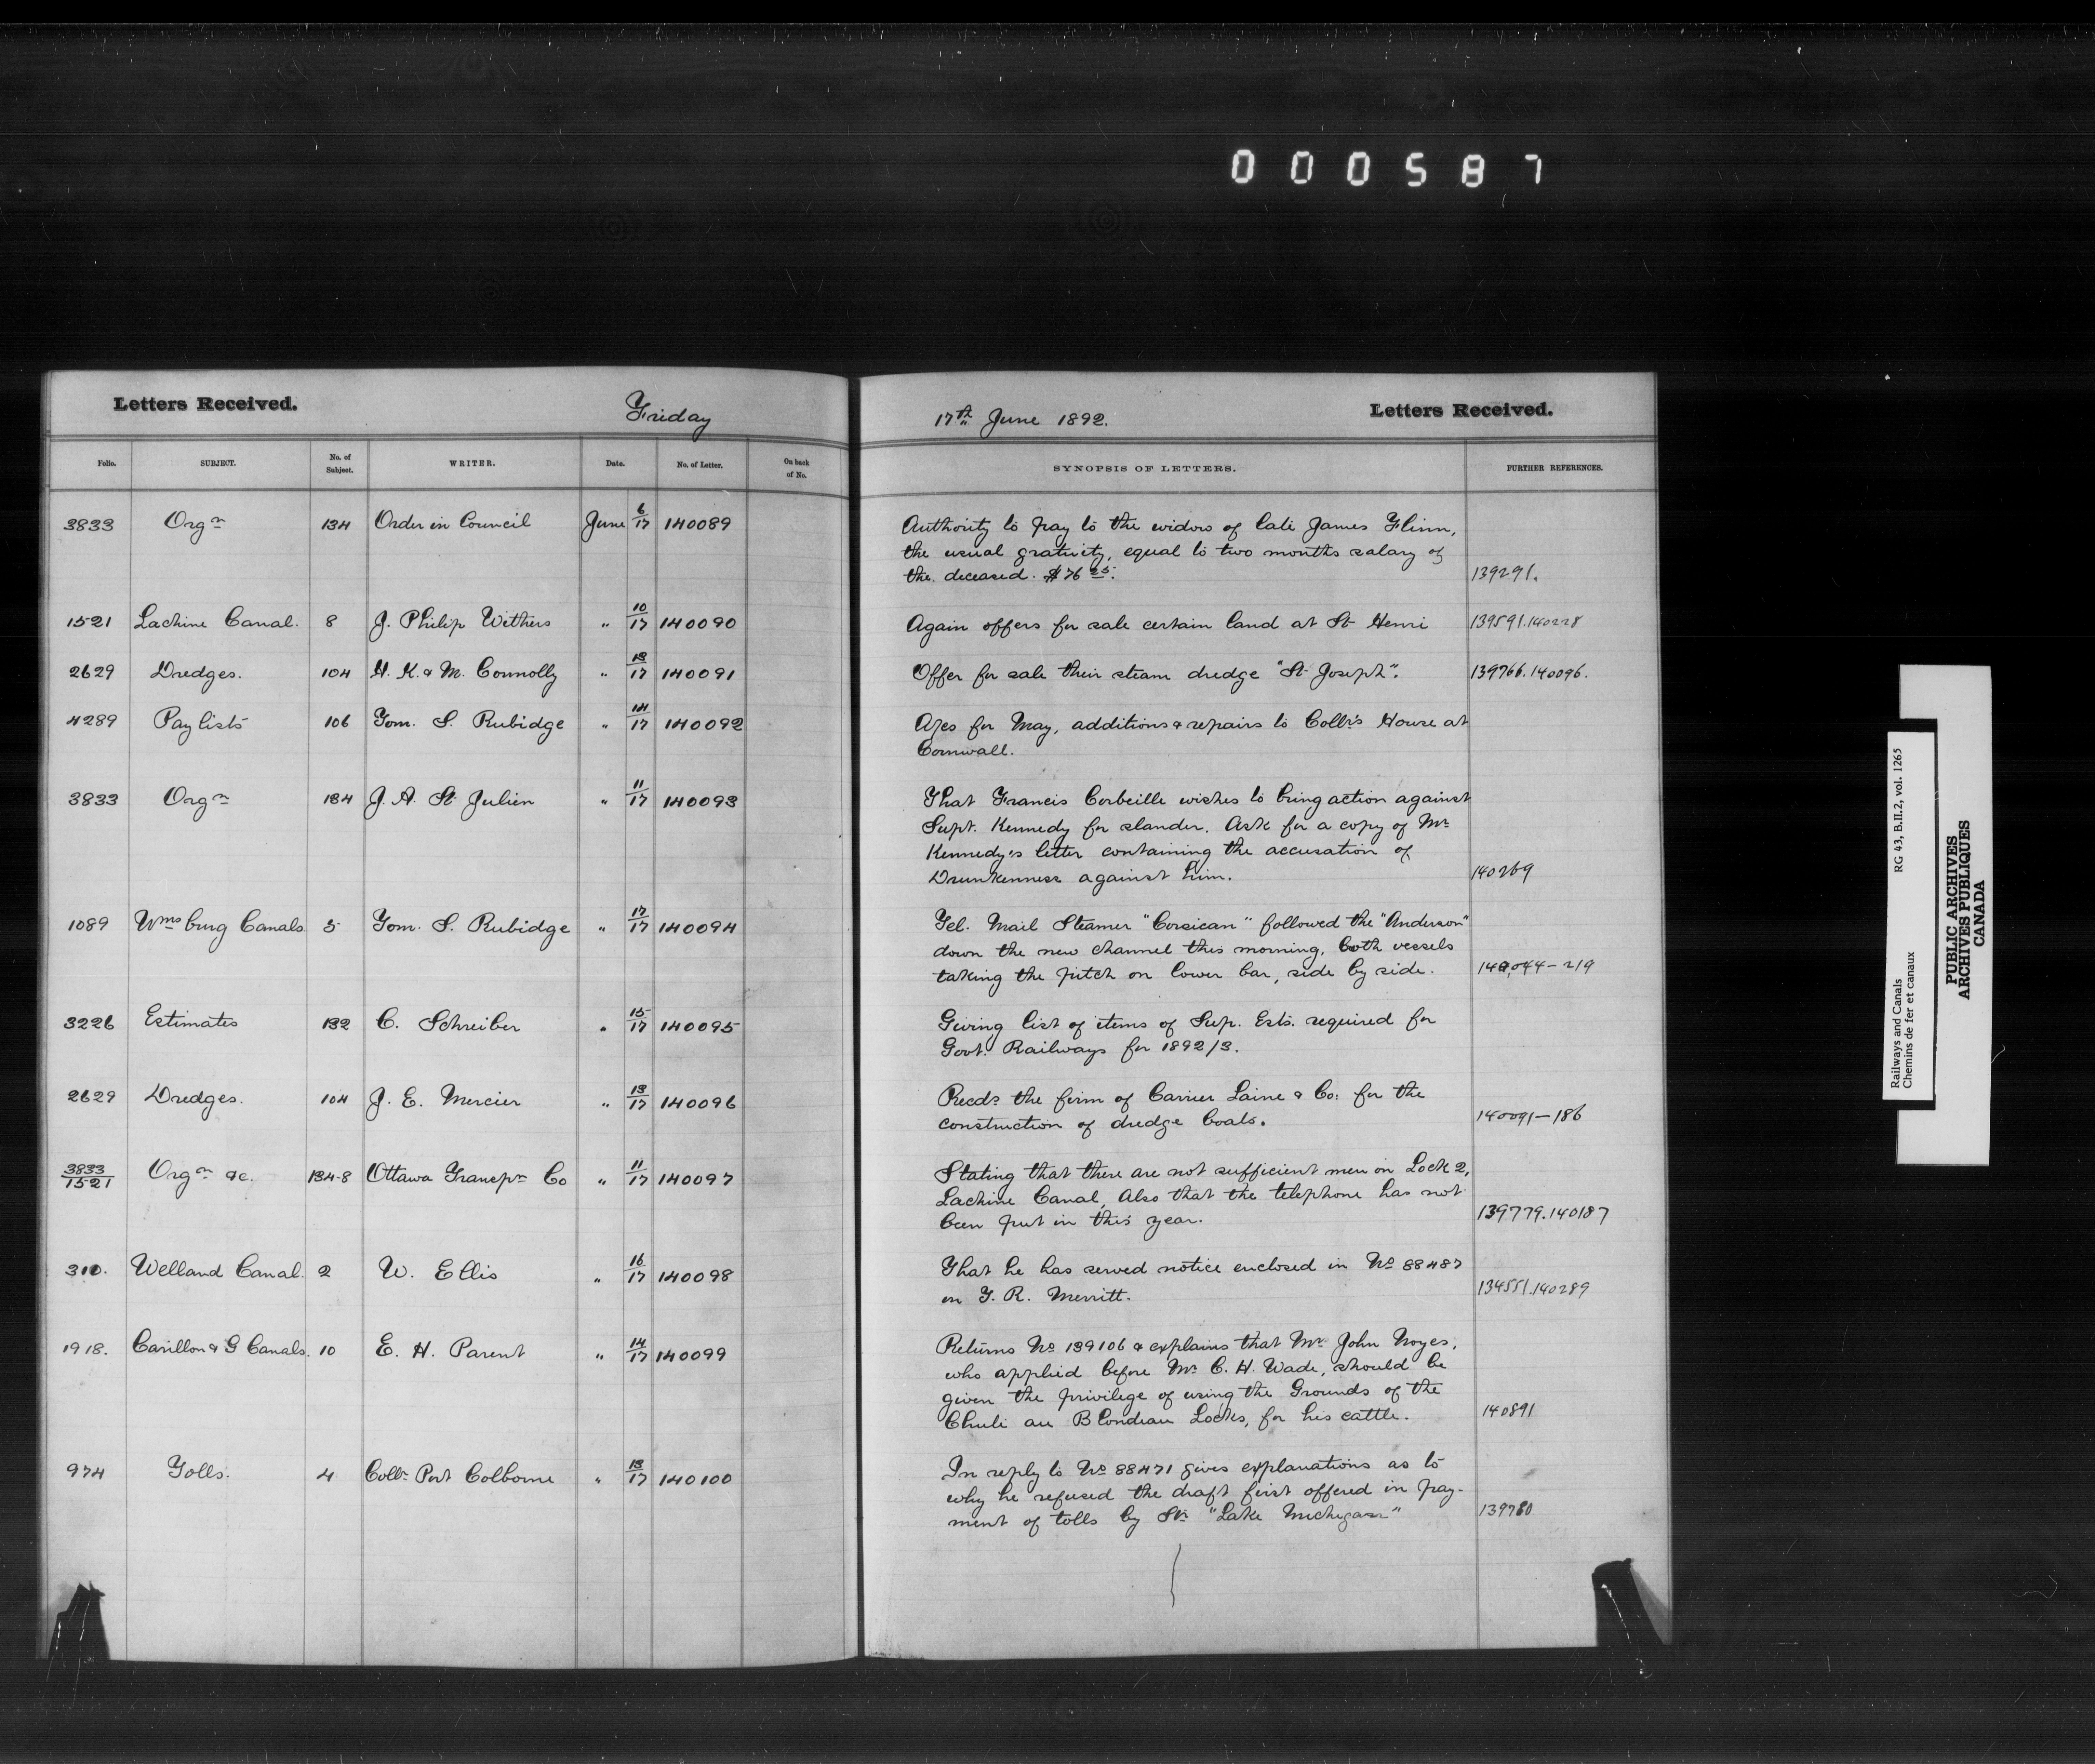 000587
Letters Received.
Friday
17th June 1892.
Letters Received.
Folio. SUBJECT. No. of Subject. WRITER. Date. No. of Letter. On back of No. SYNOPSIS OF LETTERS. FURTHER REFERENCES.
3833 Orgn 134 Order in Council June 6/17 140089 Authority to pay to the widow of late James Flinn,
the usual gratuity, equal to two months salary of
the deceased. $76 25. 139291.
1521 Lachine Canal. 8 J. Philip Withers " 10/17 140090 Again offers for sale certain land at St Henri 139591.140228
2629 Dredges. 104 N. K. & M. Connolly " 13/17 140091 Offer for sale their steam dredge "St Joseph". 139766.140096.
4289 Pay lists 106 Tom. S. Rubidge " 14/17 140092 A/cs for May, additions & repairs to Collr's House at
Cornwall.
3833 Orgn 134 J. A. St Julien " 11/17 140093 That Francis Corbeille wishes to bring action against
Supt. Kennedy for slander. Ask for a copy of Mr
Kennedy's letter containing the accusation of
Drunkenness against him. 140269
1089 Wmsburg Canals 5 Tom. S. Rubidge " 17/17 140094 Tel. Mail Steamer "Corsican" followed the "Anderson"
down the new channel this morning, both vessels
taking the pitch on lower bar, side by side. 140,044-219
3226 Estimates 132 C. Schreiber " 15/17 140095 Giving list of items of Sup. Ests. required for
Govt. Railways for 1892/3.
2629 Dredges. 104 J. E. Mercier " 13/17 140096 Recds the firm of Carrier Laine & Co: for the
construction of dredge boats. 140091-186
3833/1521 Orgn &c. 134-8 Ottawa Transpn Co " 11/17 140097 Stating that there are not sufficient men on Lock 2,
Lachine Canal, Also that the telephone has not
been put in this year. 139779.140187
310. Welland Canal. 2 W. Ellis " 16/17 140098 That he has served notice enclosed in No 88487
on T. R. Merritt. 134551.140289
1918. Carillon & G Canals. 10 E. H. Parent " 14/17 140099 Returns No 139106 & explains that Mr. John Noyes,
who applied before Mr C. H. Wade, should be
given the privilege of using the Grounds of the
Chute au Blondeau Locks, for his cattle. 140891
974 Tolls. 4 Collr Port Colborne " 13/17 140100 In reply to No 88471 gives explanations as to
why he refused the draft first offered in pay-
ment of tolls by Str "Lake Michigan" 139780
Railways and Canals RG 43, B.II.2, vol. 1265
Chemins de fer et canaux
PUBLIC ARCHIVES
ARCHIVES PUBLIQUES
CANADA